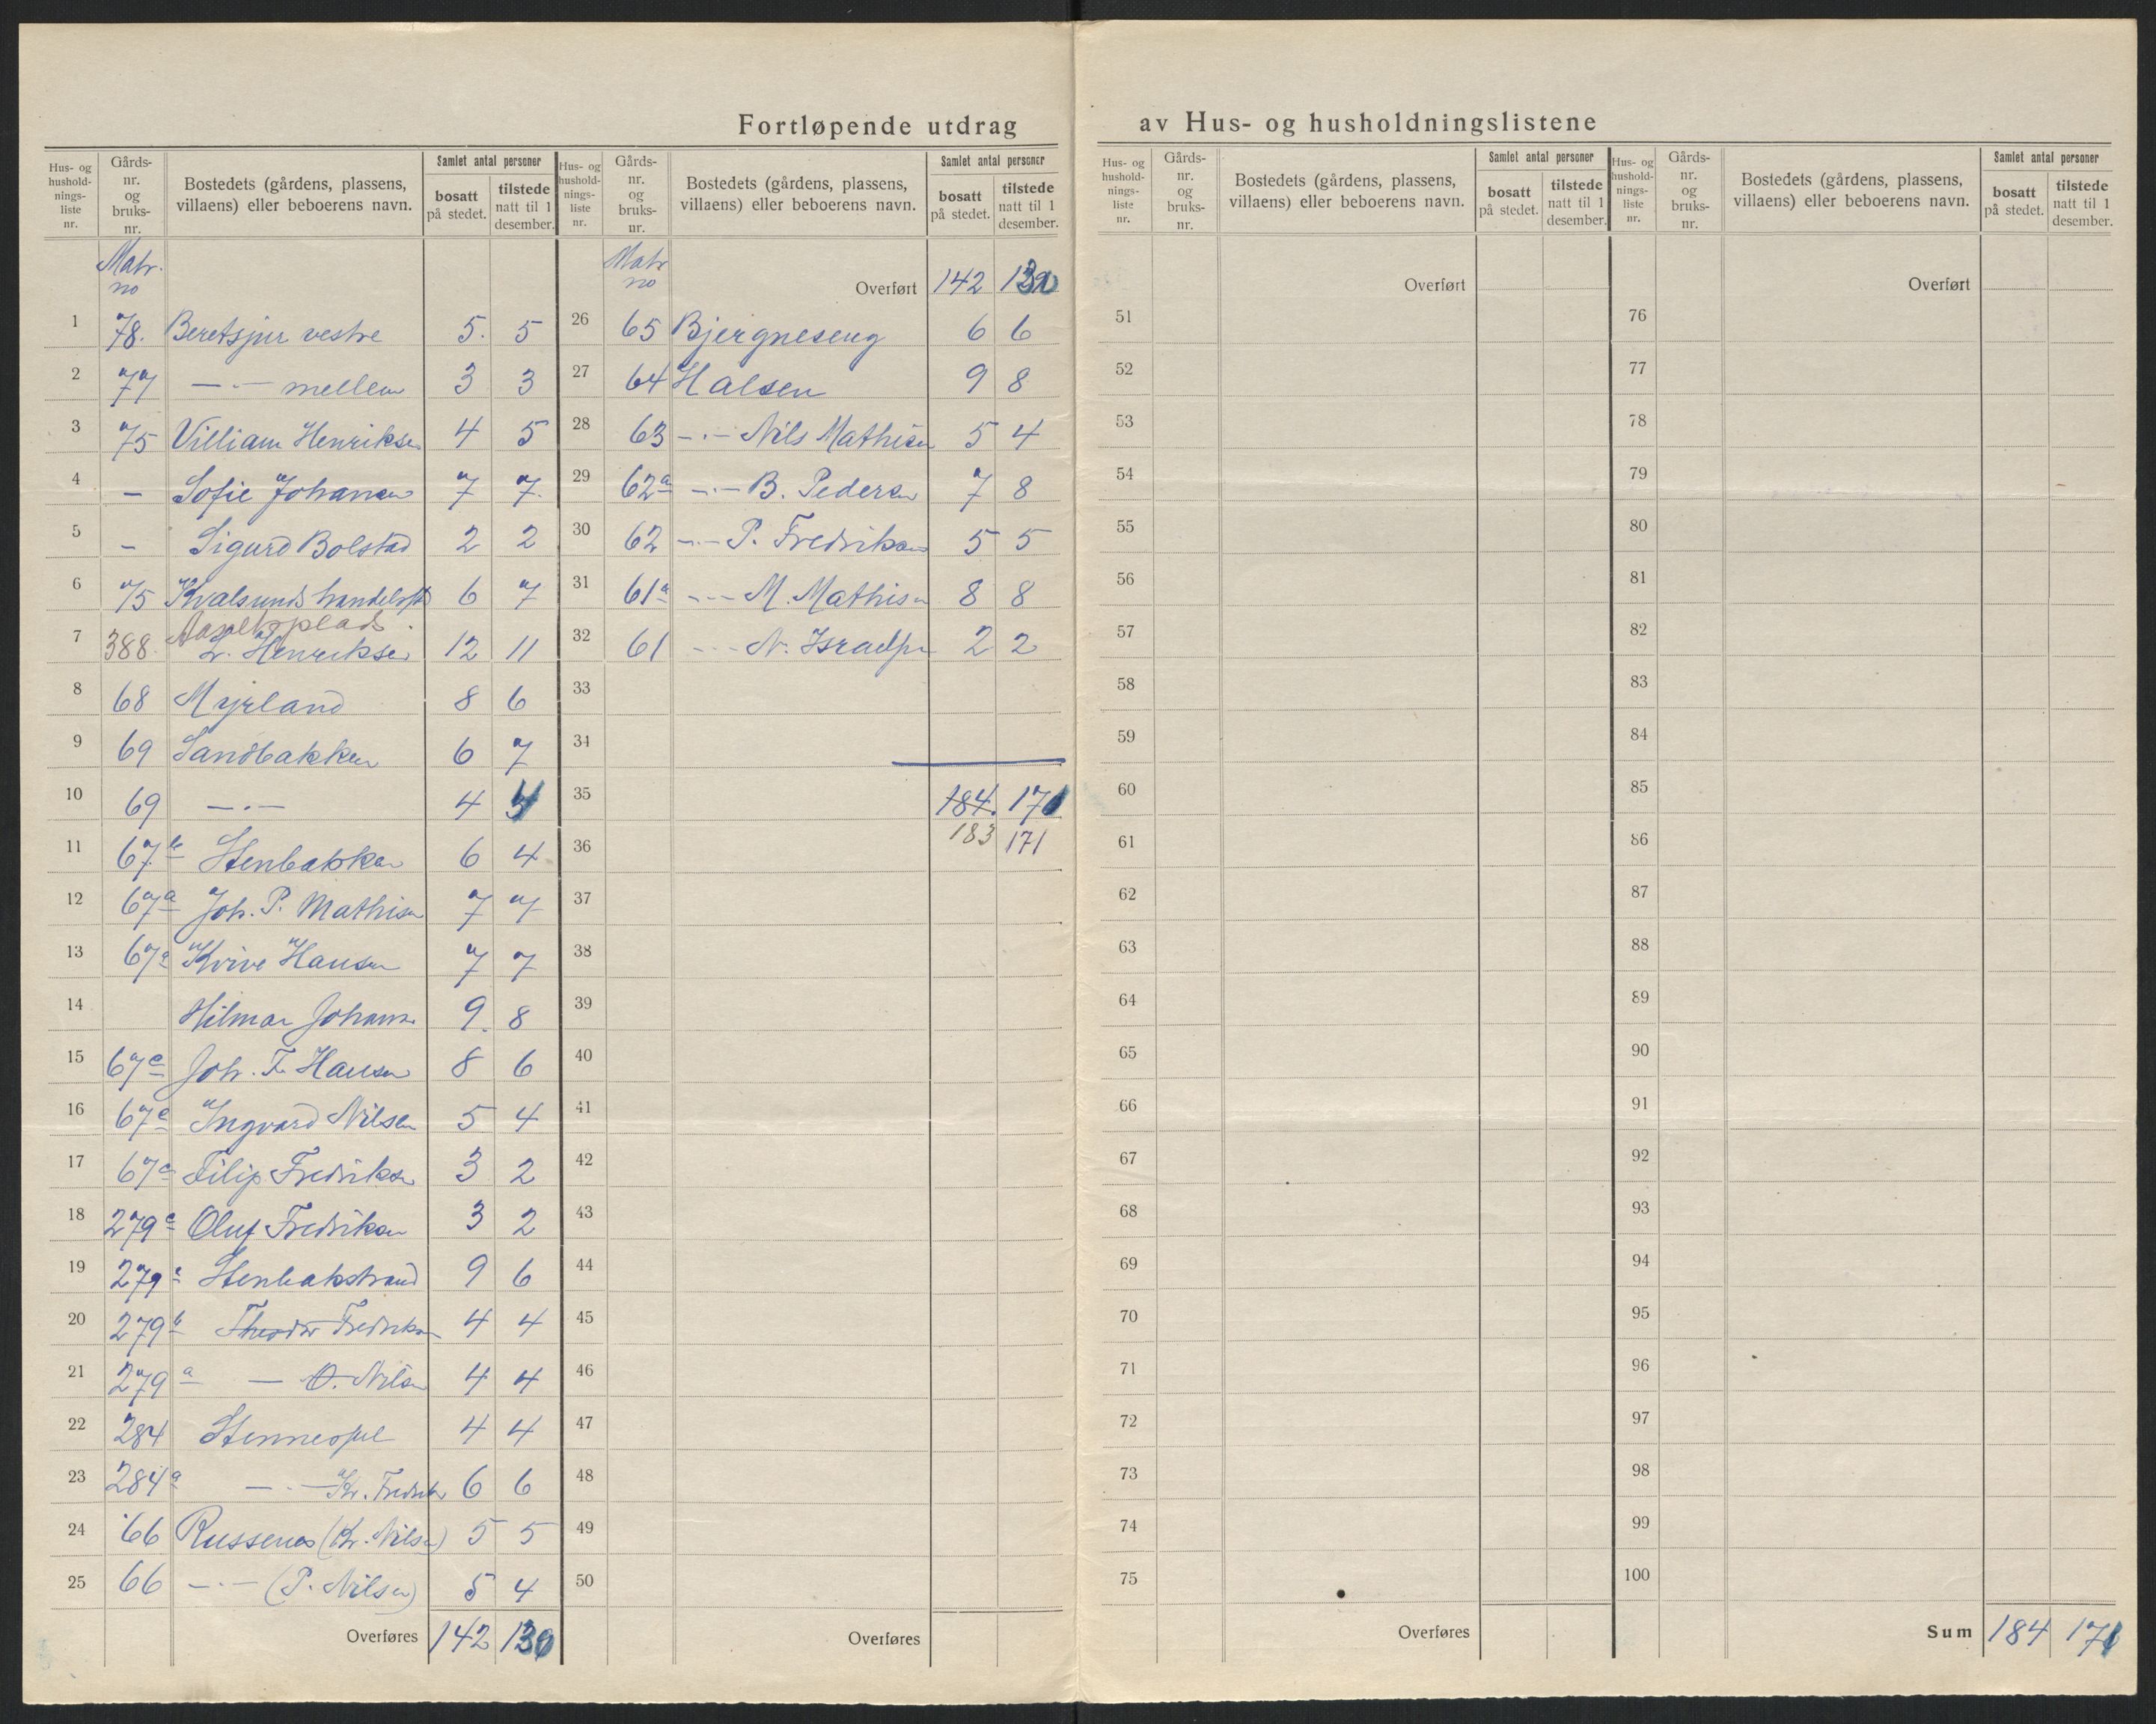 Fortløpende utdrag av Hus- og husholdningslistene
Hus- og hushold-nings-liste nr. Gårds-nr. og bruks-nr. Bostedets (gårdens, plassens, villaens) eller beboerens navn. Samlet antal personer bosatt på stedet. tilstede natt til 1 desember.
Matr. no
1 78. Beretsjur vestre 5. 5
2 77 —·— mellem 3 3
3 75 Villiam Henriksen 4 5
4 – Sofie Johansen 7 7.
5 – Sigurd Bolstad 2 2
6 75 Kvalsund handelsstd 6 7
7 388. L. Henriksen 12 11
8 68 Myrland 8 6
9 69 Sandbakken 6 7
10 69 —·— 4 4
11 67b Stenbakken 6 4
12 67a Joh. P. Mathisen 7 7
13 67a Kvive Hansen 7 7
14 Hilmar Johans. 9. 8
15 67c Joh. F. Hansen 8 6
16 67c Ingvard Nilsen 5 4
17 67c Filip Fredriksen 3 2
18 279c Oluf Fredriksen 3 2
19 279c Stenbakstrand 9 6
20 279b Theodor Fredriksen 4 4
21 279a — O. Nilsen 4 4
22 284 4 4
23 284a —·— Kr. Fredriks 6 6
24 66 Russenes (Kr. Nilsen) 5 5
25 66 —·— (P. Nilsen) 5 4
Overføres 142 130
Hus- og hushold-nings-liste nr. Gårds-nr. og bruks-nr. Bostedets (gårdens, plassens, villaens) eller beboerens navn. Samlet antal personer bosatt på stedet. tilstede natt til 1 desember.
Matr no Overført 142 130
26 65 Bjergneseng 6 6
27 64 Halsen 9 8
28 63 –·– Nils Mathisen 5 4
29 62a –·– B. Pedersen 7 8
30 62 –·– P. Fredriksen 5 5
31 61a –·– M. Mathisen 8 8
32 61 –·– N. Israelsen 2 2
33
34
35 184. 171
36 183 171
37
38
39
40
41
42
43
44
45
46
47
48
49
50
Overføres
Hus- og hushold-nings-liste nr. Gårds-nr. og bruks-nr. Bostedets (gårdens, plassens, villaens) eller beboerens navn. Samlet antal personer bosatt på stedet. tilstede natt til 1 desember.
Overført
51
52
53
54
55
56
57
58
59
60
61
62
63
64
65
66
67
68
69
70
71
72
73
74
75
Overføres
Hus- og hushold-nings-liste nr. Gårds-nr. og bruks-nr. Bostedets (gårdens, plassens, villaens) eller beboerens navn. Samlet antal personer bosatt på stedet. tilstede natt til 1 desember.
Overført
76
77
78
79
80
81
82
83
84
85
86
87
88
89
90
91
92
93
94
95
96
97
98
99
100
Sum 184 171